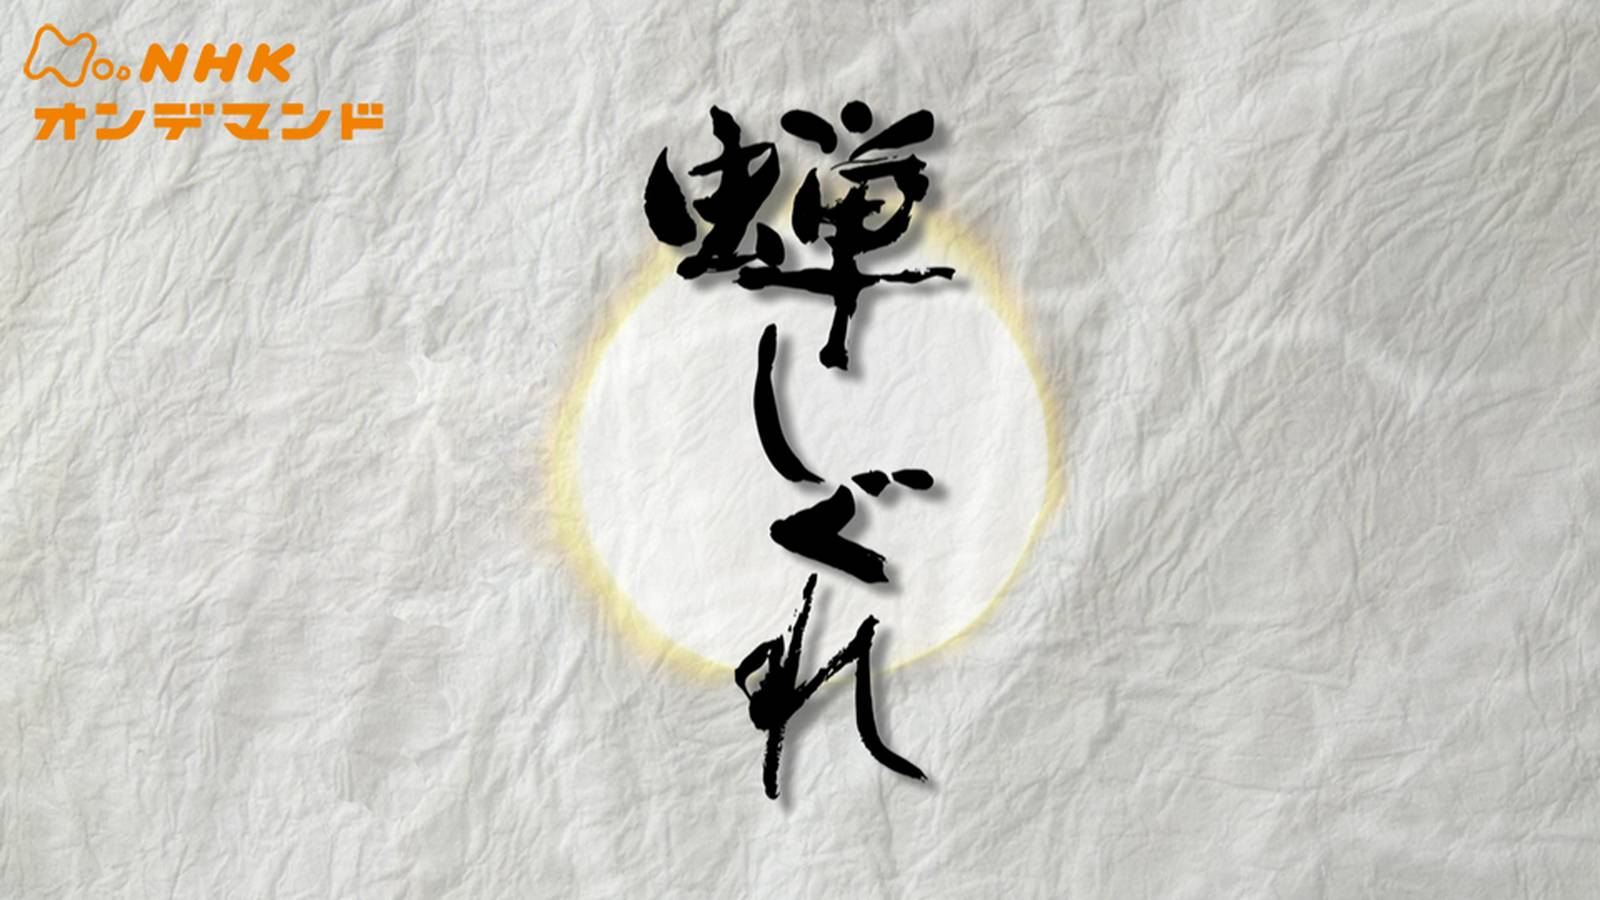 NHK
オンデマンド
蝉しぐれ